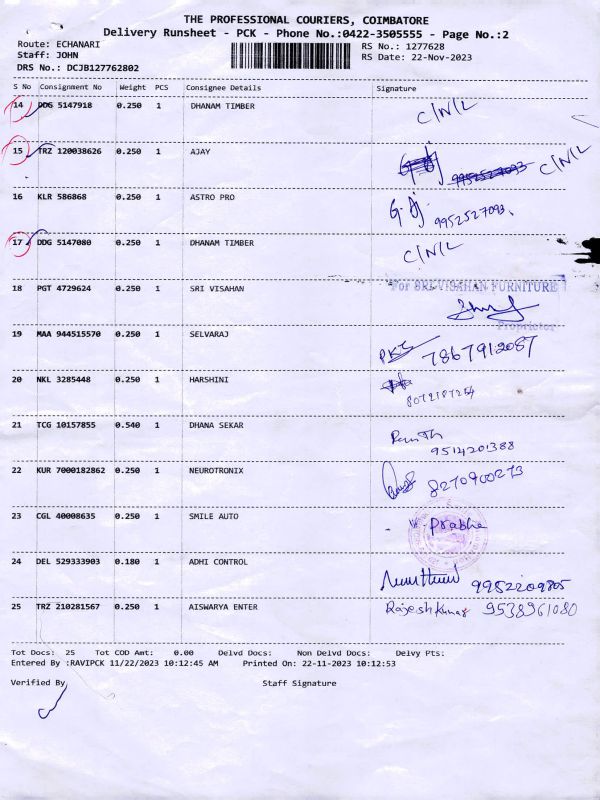 THE PROFESSIONAL COURIERS, COIMBATORE
Delivery Runsheet - PCK - Phone No.:0422-3505555 - Page No.:2
Route: ECHANARI
RS No.: 1277628
Staff: JOHN
RS Date: 22-Nov-2023
DRS No.: DCJB127762802
S No Consignment No Weight PCS Consignee Details Signature
14 DDG 5147918 0.250 1 DHANAM TIMBER C/N/L
15 TRZ 120038626 0.250 1 AJAY C/N/L
16 KLR 586868 0.250 1 ASTRO PRO 9952527093
17 DDG 5147080 0.250 1 DHANAM TIMBER C/N/L
18 PGT 4729624 0.250 1 SRI VISAHAN For SRI VISAHAN FURNITURE
Proprietor
19 MAA 944515570 0.250 1 SELVARAJ 7867912087
20 NKL 3285448 0.250 1 HARSHINI
21 TCG 10157855 0.540 1 DHANA SEKAR
9514201388
22 KUR 7000182862 0.250 1 NEUROTRONIX 8270900273
23 CGL 40008635 0.250 1 SMILE AUTO Prabha
24 DEL 529333903 0.180 1 ADHI CONTROL 9952209805
25 TRZ 210281567 0.250 1 AISWARYA ENTER Rajesh Kumar 9538961080
Tot Docs: 25 Tot COD Amt: 0.00 Delvd Docs: Non Delvd Docs: Delvy Pts:
Entered By :RAVIPCK 11/22/2023 10:12:45 AM Printed On: 22-11-2023 10:12:53
Verified By Staff Signature